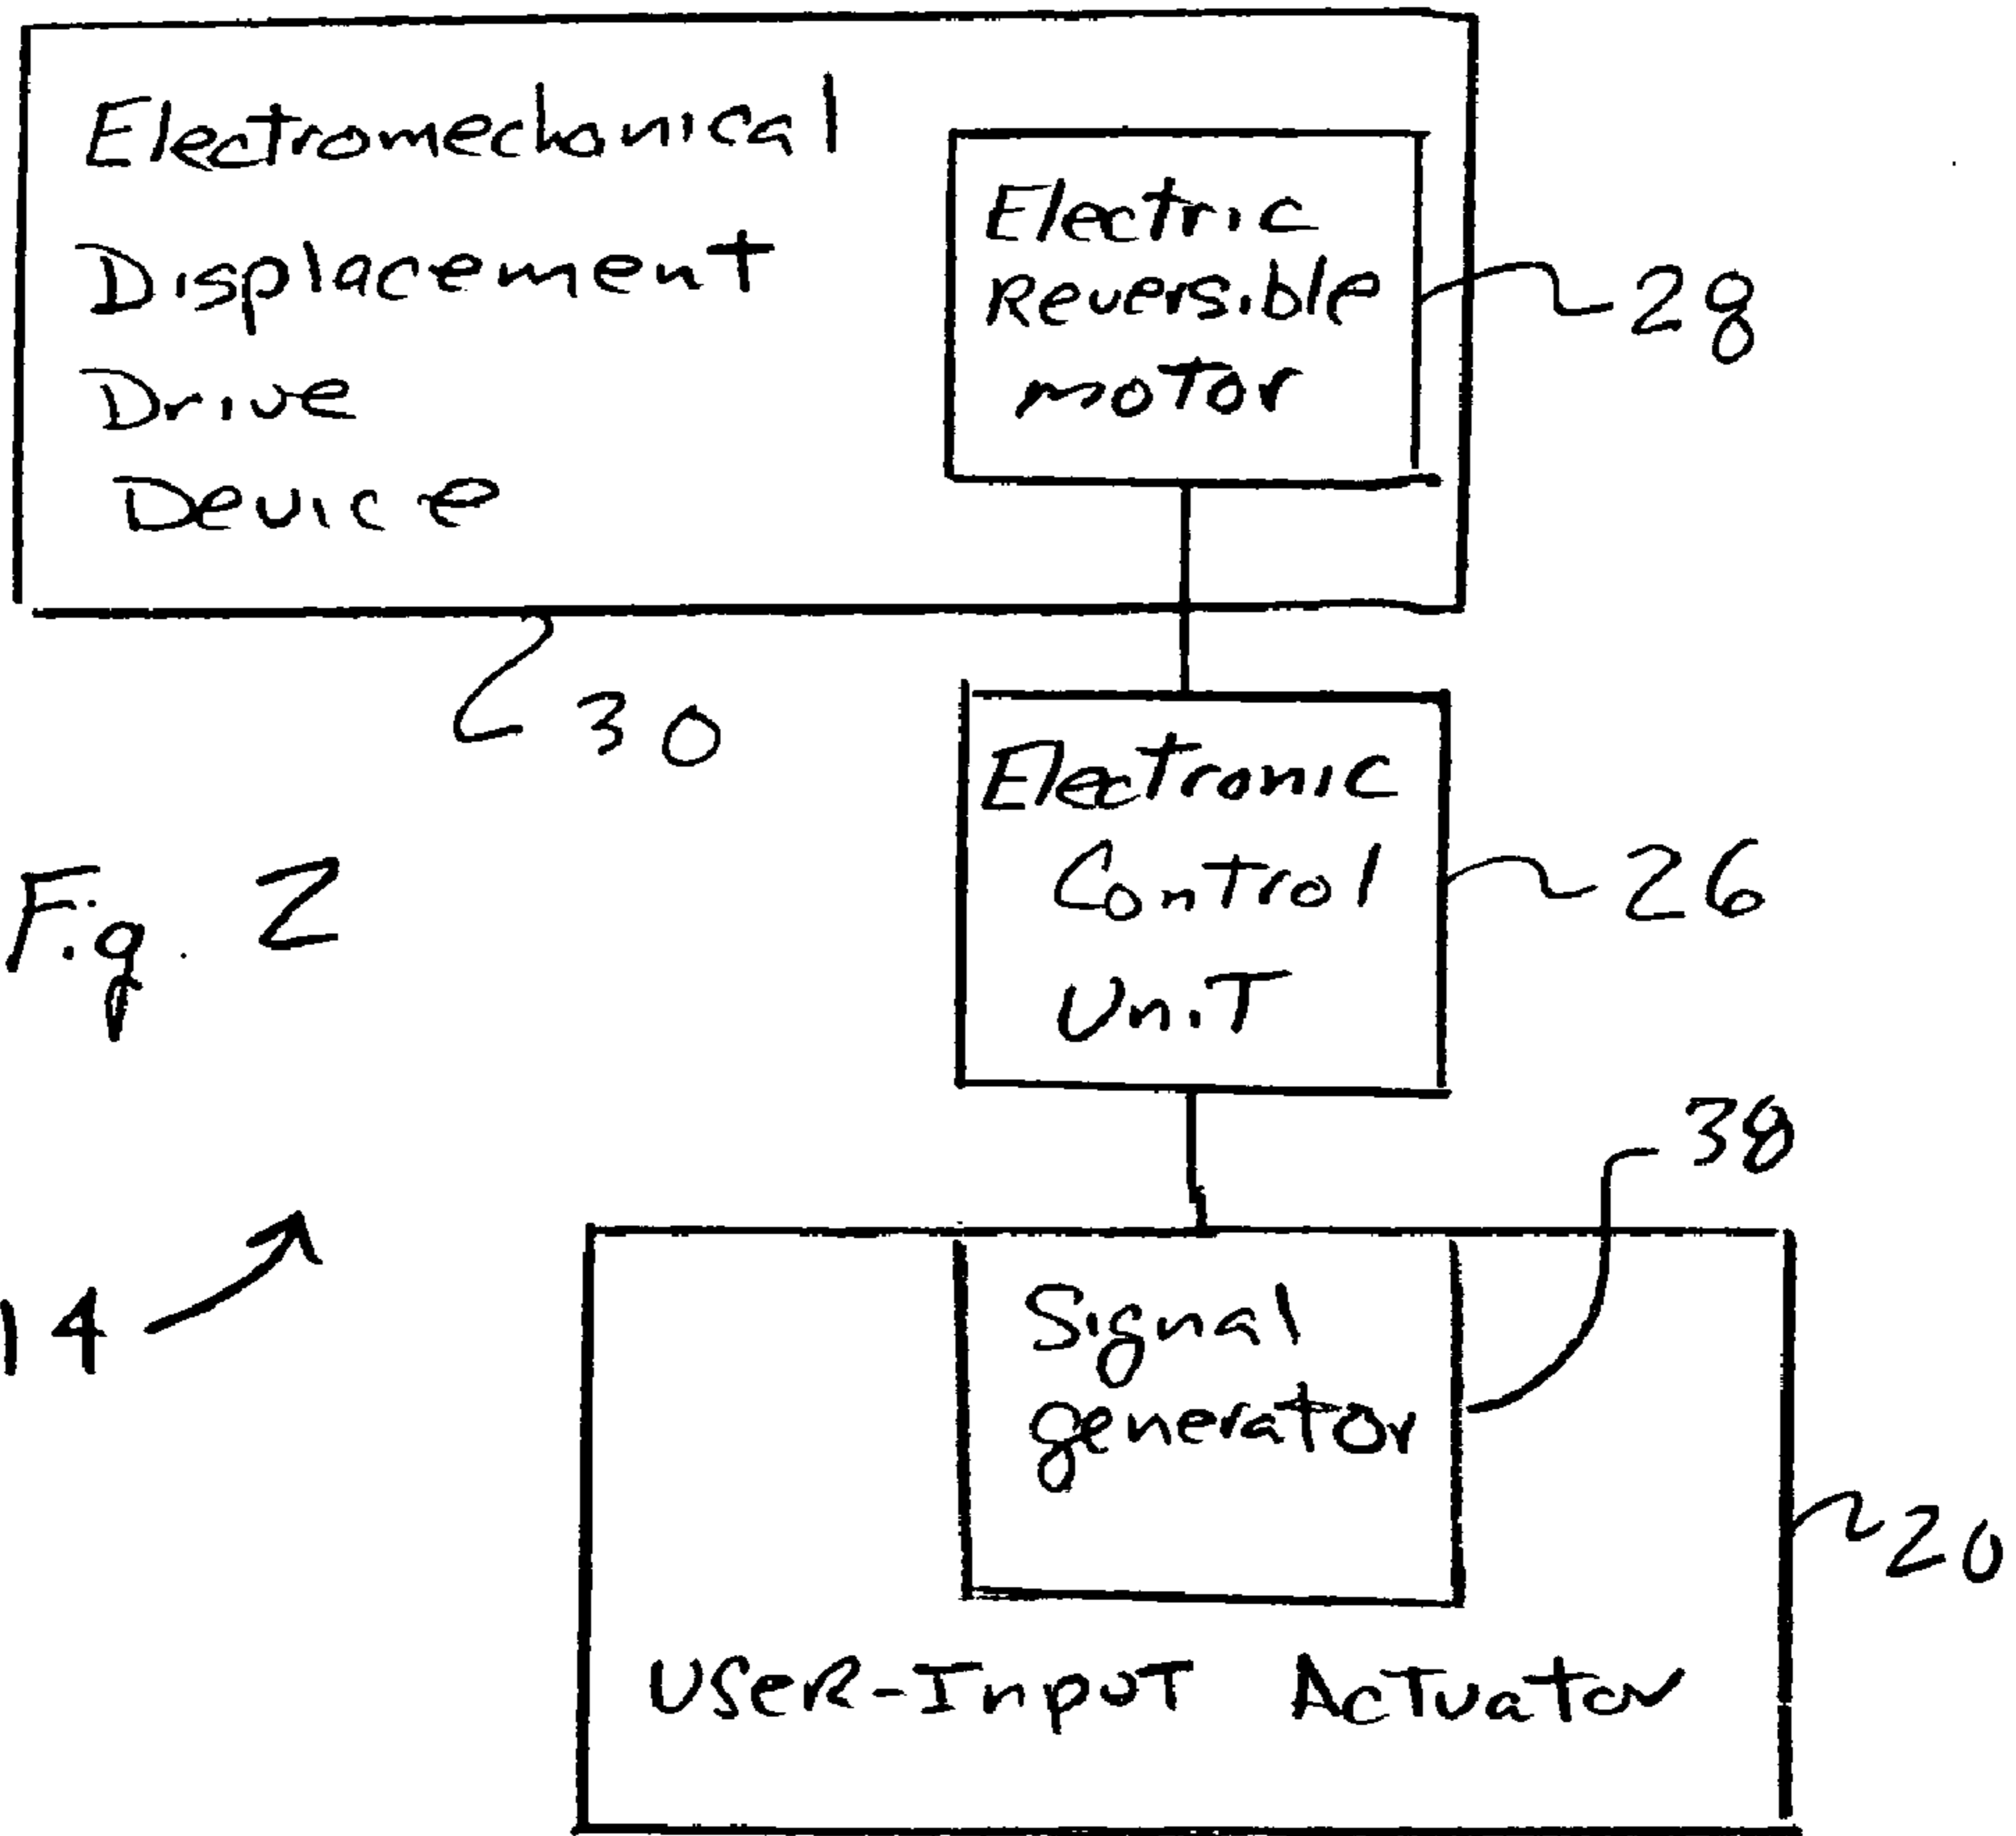 Electromechanical
Displacement
Drive
Device
Electric
Reversible
motor
28
30
Electronic
Control
UniT
26
Fig. 2
38
14
Signal
generator
20
USeR-InpuT AcTuator